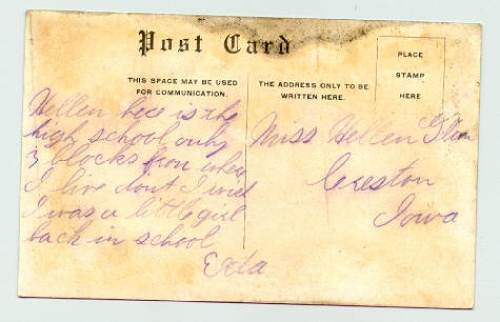 Post Card
THIS SPACE MAY BE USED
FOR COMMUNICATION.
THE ADDRESS ONLY TO BE
WRITTEN HERE.
PLACE
STAMP
HERE
Hellen here is the
high school only
3 blocks from where
I live dont I wish
I was a little girl
back in school
Miss Hellen
Creston
Iowa